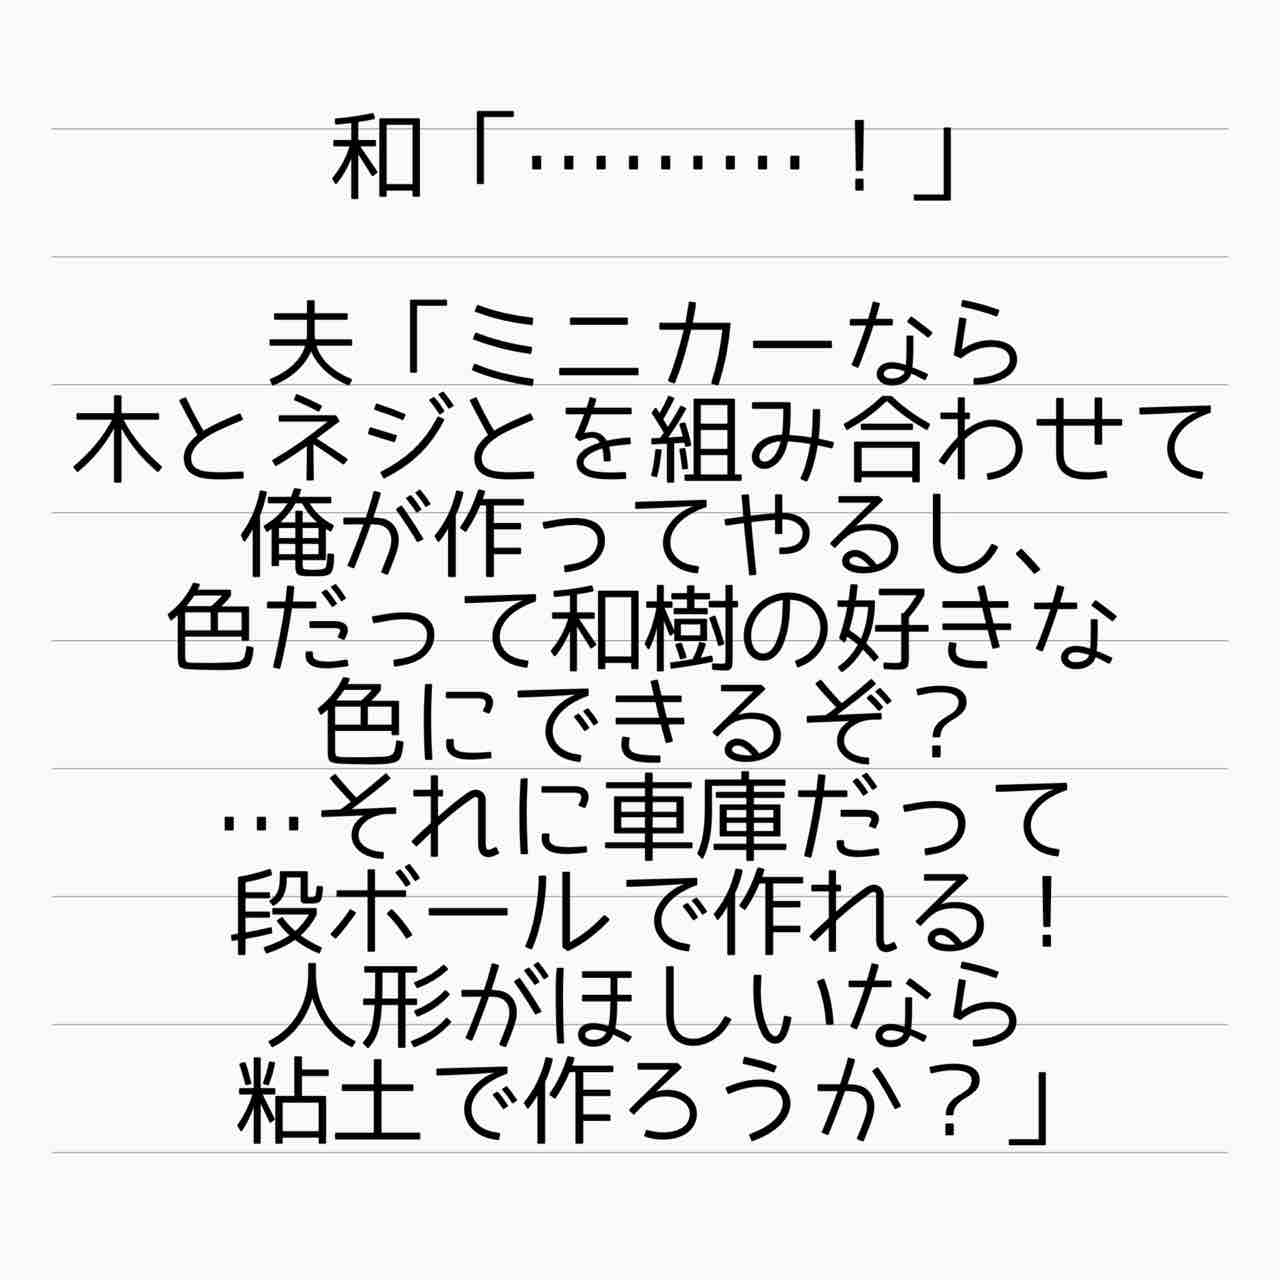 和「………！」
夫「ミニカーなら
木とネジとを組み合わせて
俺が作ってやるし、
色だって和樹の好きな
色にできるぞ？
…それに車庫だって
段ボールで作れる！
人形がほしいなら
粘土で作ろうか？」